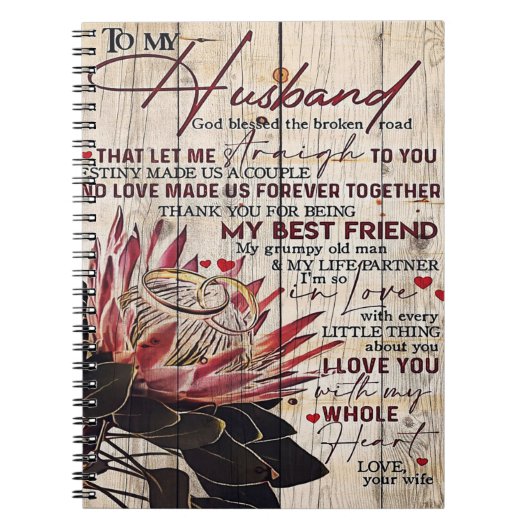 TO MY
Husband
God blessed the broken road
THAT LET ME straigh TO YOU
ESTINY MADE US A COUPLE
ND LOVE MADE US FOREVER TOGETHER
THANK YOU FOR BEING
MY BEST FRIEND
My grumpy old man
& MY LIFE PARTNER
I'm so
in Love
with every
LITTLE THING
about you
I LOVE YOU
with my
WHOLE
Heart
LOVE,
your wife